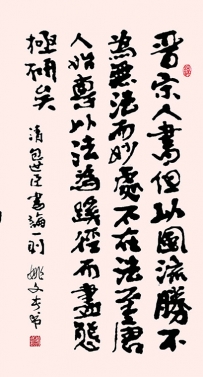 晋宗人書但以風流勝不
為無法而妙處不在法至唐
人始專以法為蹊徑而盡態
極妍矣
清包世臣書論一則 姚文奎書